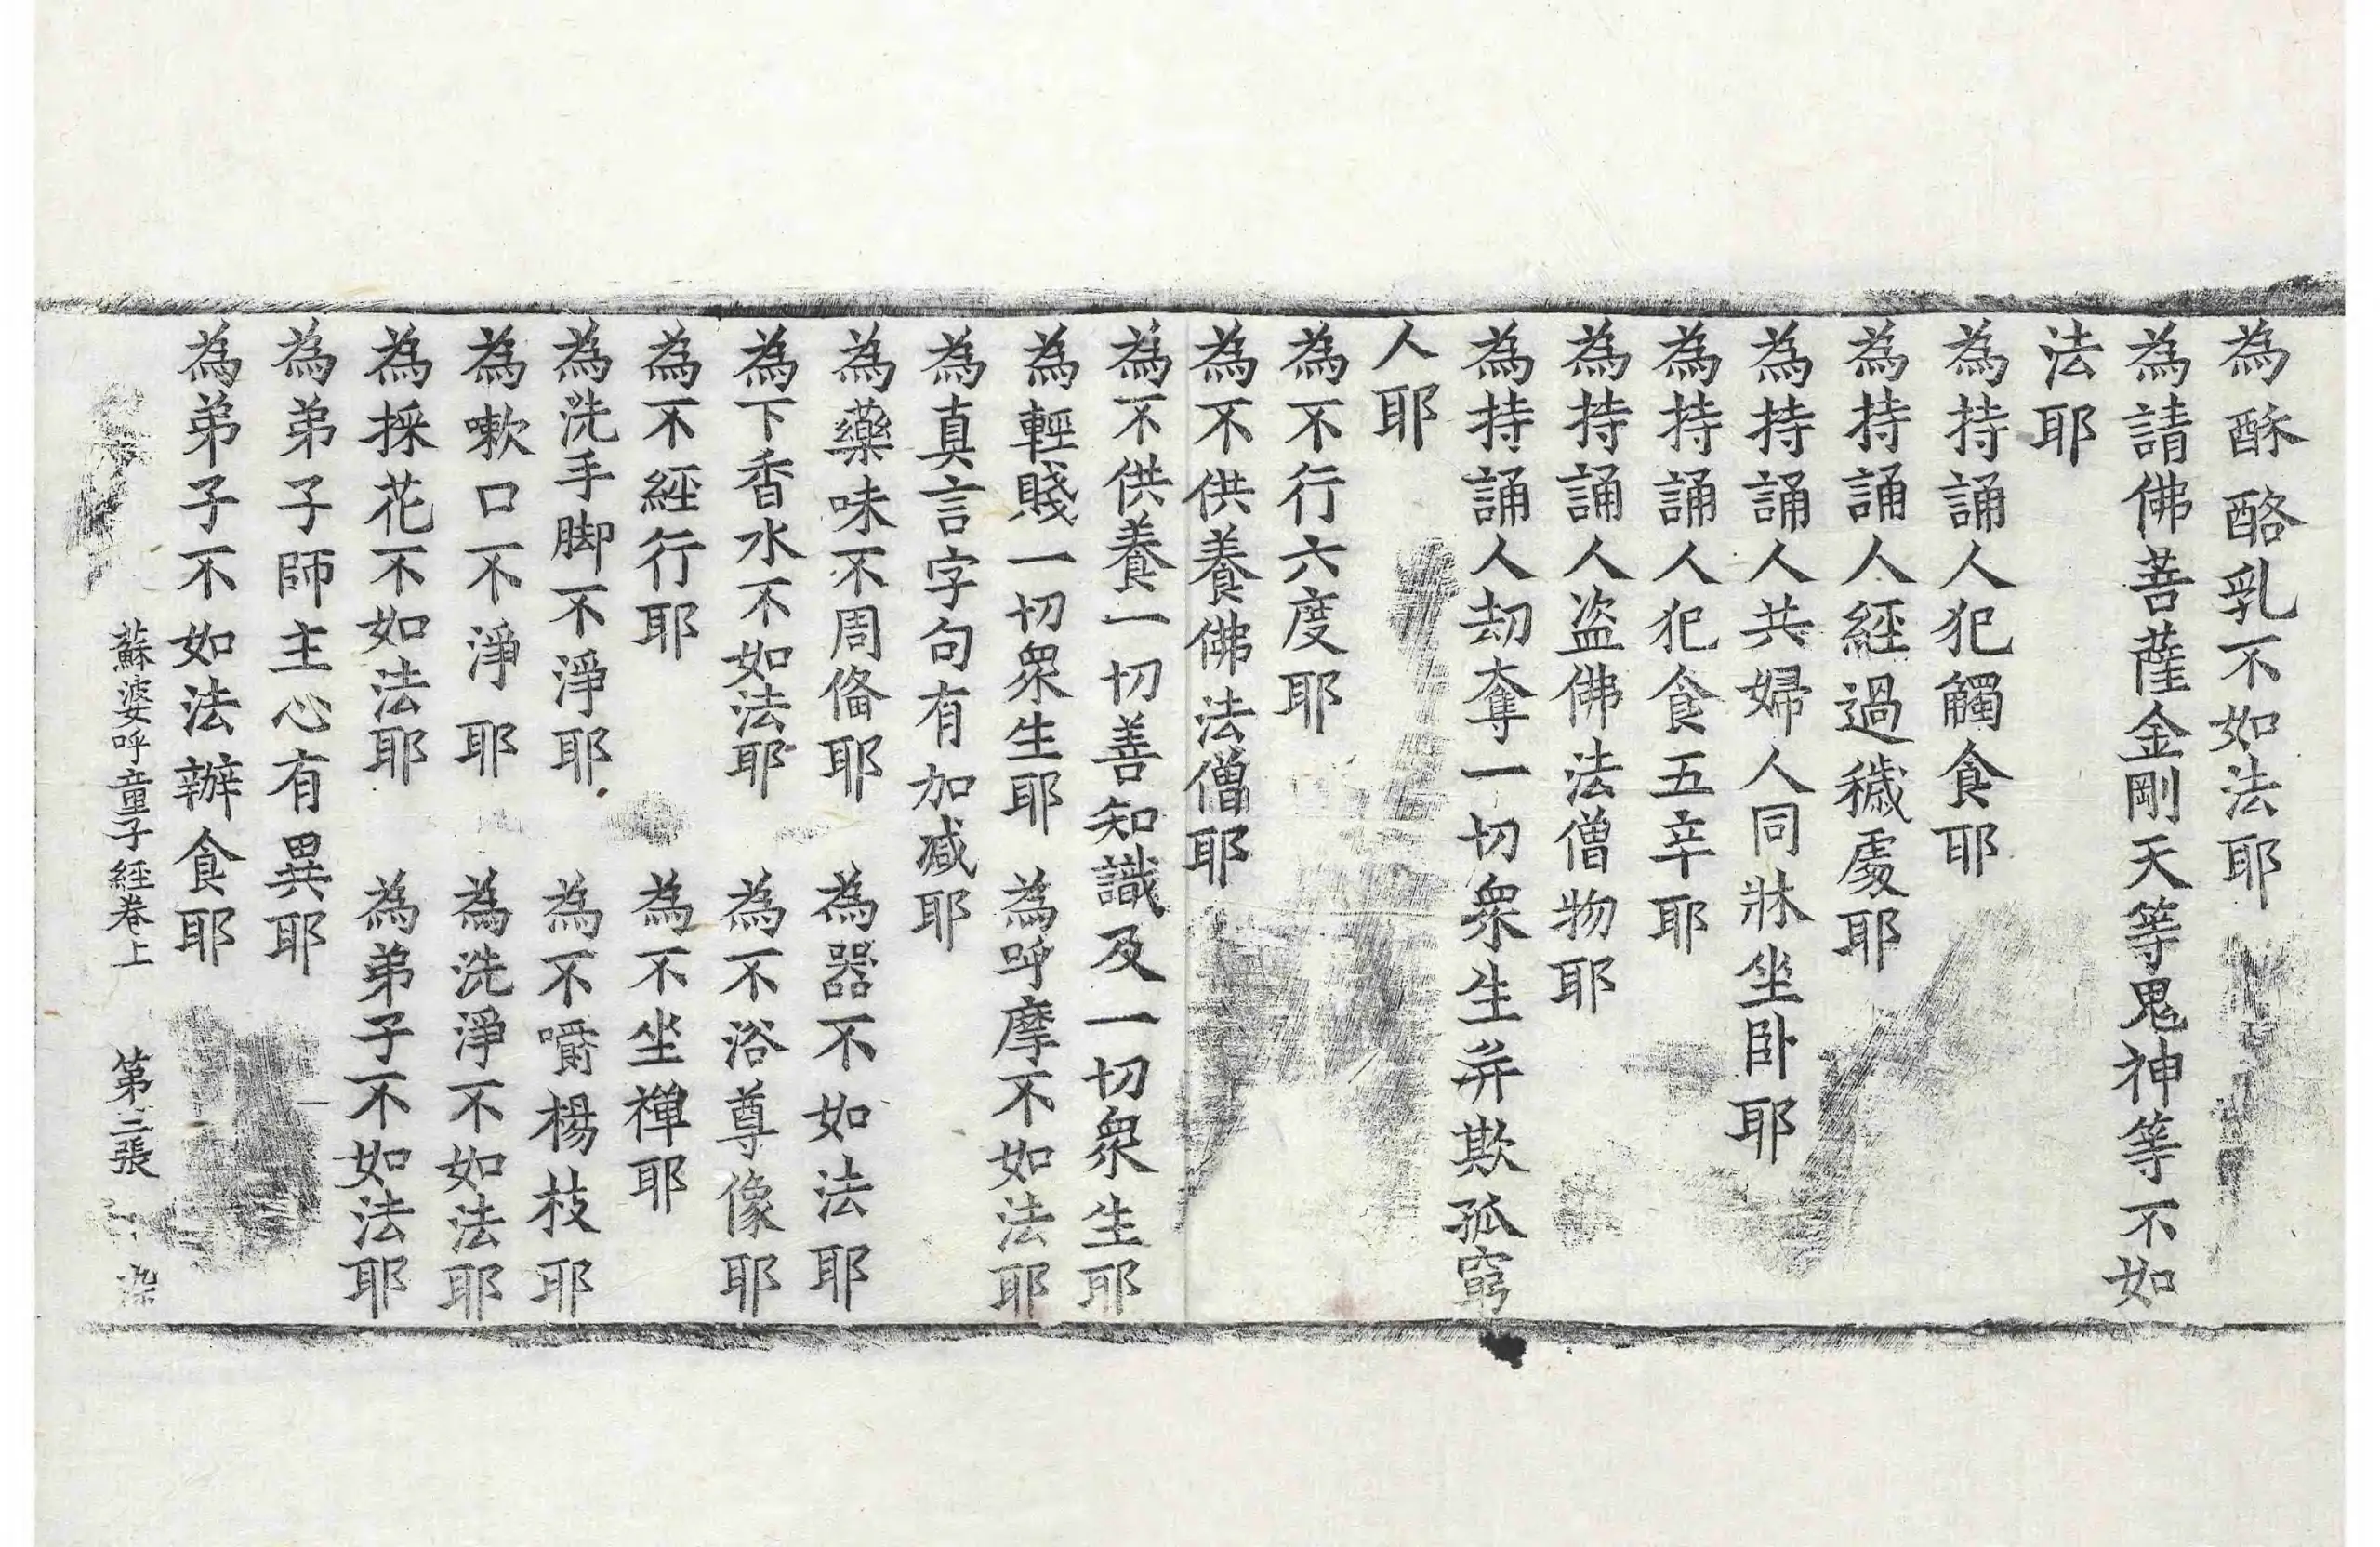 為酥酪乳不如法耶
為請佛菩薩金剛天等鬼神等不如
法耶
為持誦人犯觸食耶
為持誦人經過穢處耶
為持誦人共婦人同牀坐卧耶
為持誦人犯食五辛耶
為持誦人盗佛法僧物耶
為持誦人劫奪一切衆生并欺孤窮
人耶
為不行六度耶
為不供養佛法僧耶
為不供養一切善知識及一切衆生耶
為輕賤一切衆生耶 為呼摩不如法耶
為真言字句有加减耶
為藥味不周俻耶 為器不如法耶
為下香水不如法耶 為不浴尊像耶
為不經行耶 為不坐禪耶
為洗手脚不淨耶 為不嚼楊枝耶
為嗽口不淨耶 為洗淨不如法耶
為採花不如法耶 為弟子不如法耶
為弟子師主心有異耶
為弟子不如法辦食耶
蘇婆呼童子經卷上 第三張 染